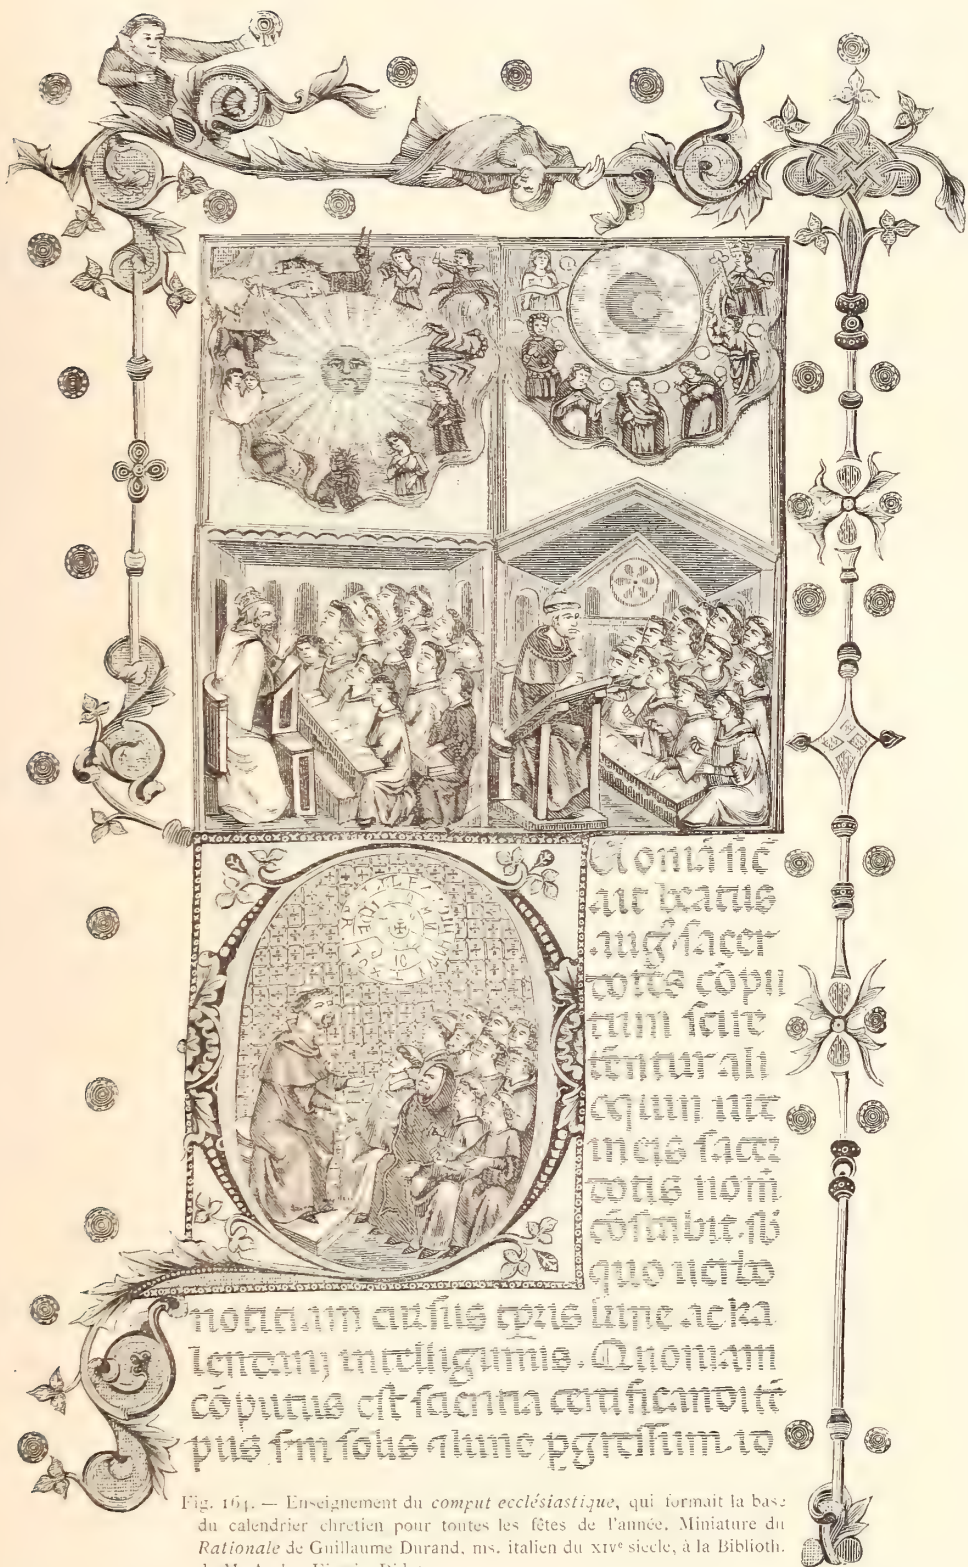 ait beatus
aug. sacer
dotes cōpu
tum scire
tēntur ali
oquin uix
in eis sacer
dotis nom̄
quo uerbo
notitiam cursus tp̄is lune ac ka
lendarij intelligimus. Quoniam
cōputus est sciencia certificandi tē
pus s̄m solis a lune pgressum. id
Fig. 164. — Enseignement du comput ecclésiastique, qui formait la base
du calendrier chrétien pour toutes les fêtes de l'année. Miniature du
Rationale de Guillaume Durand, ms. italien du XIVe siècle, à la Biblioth.